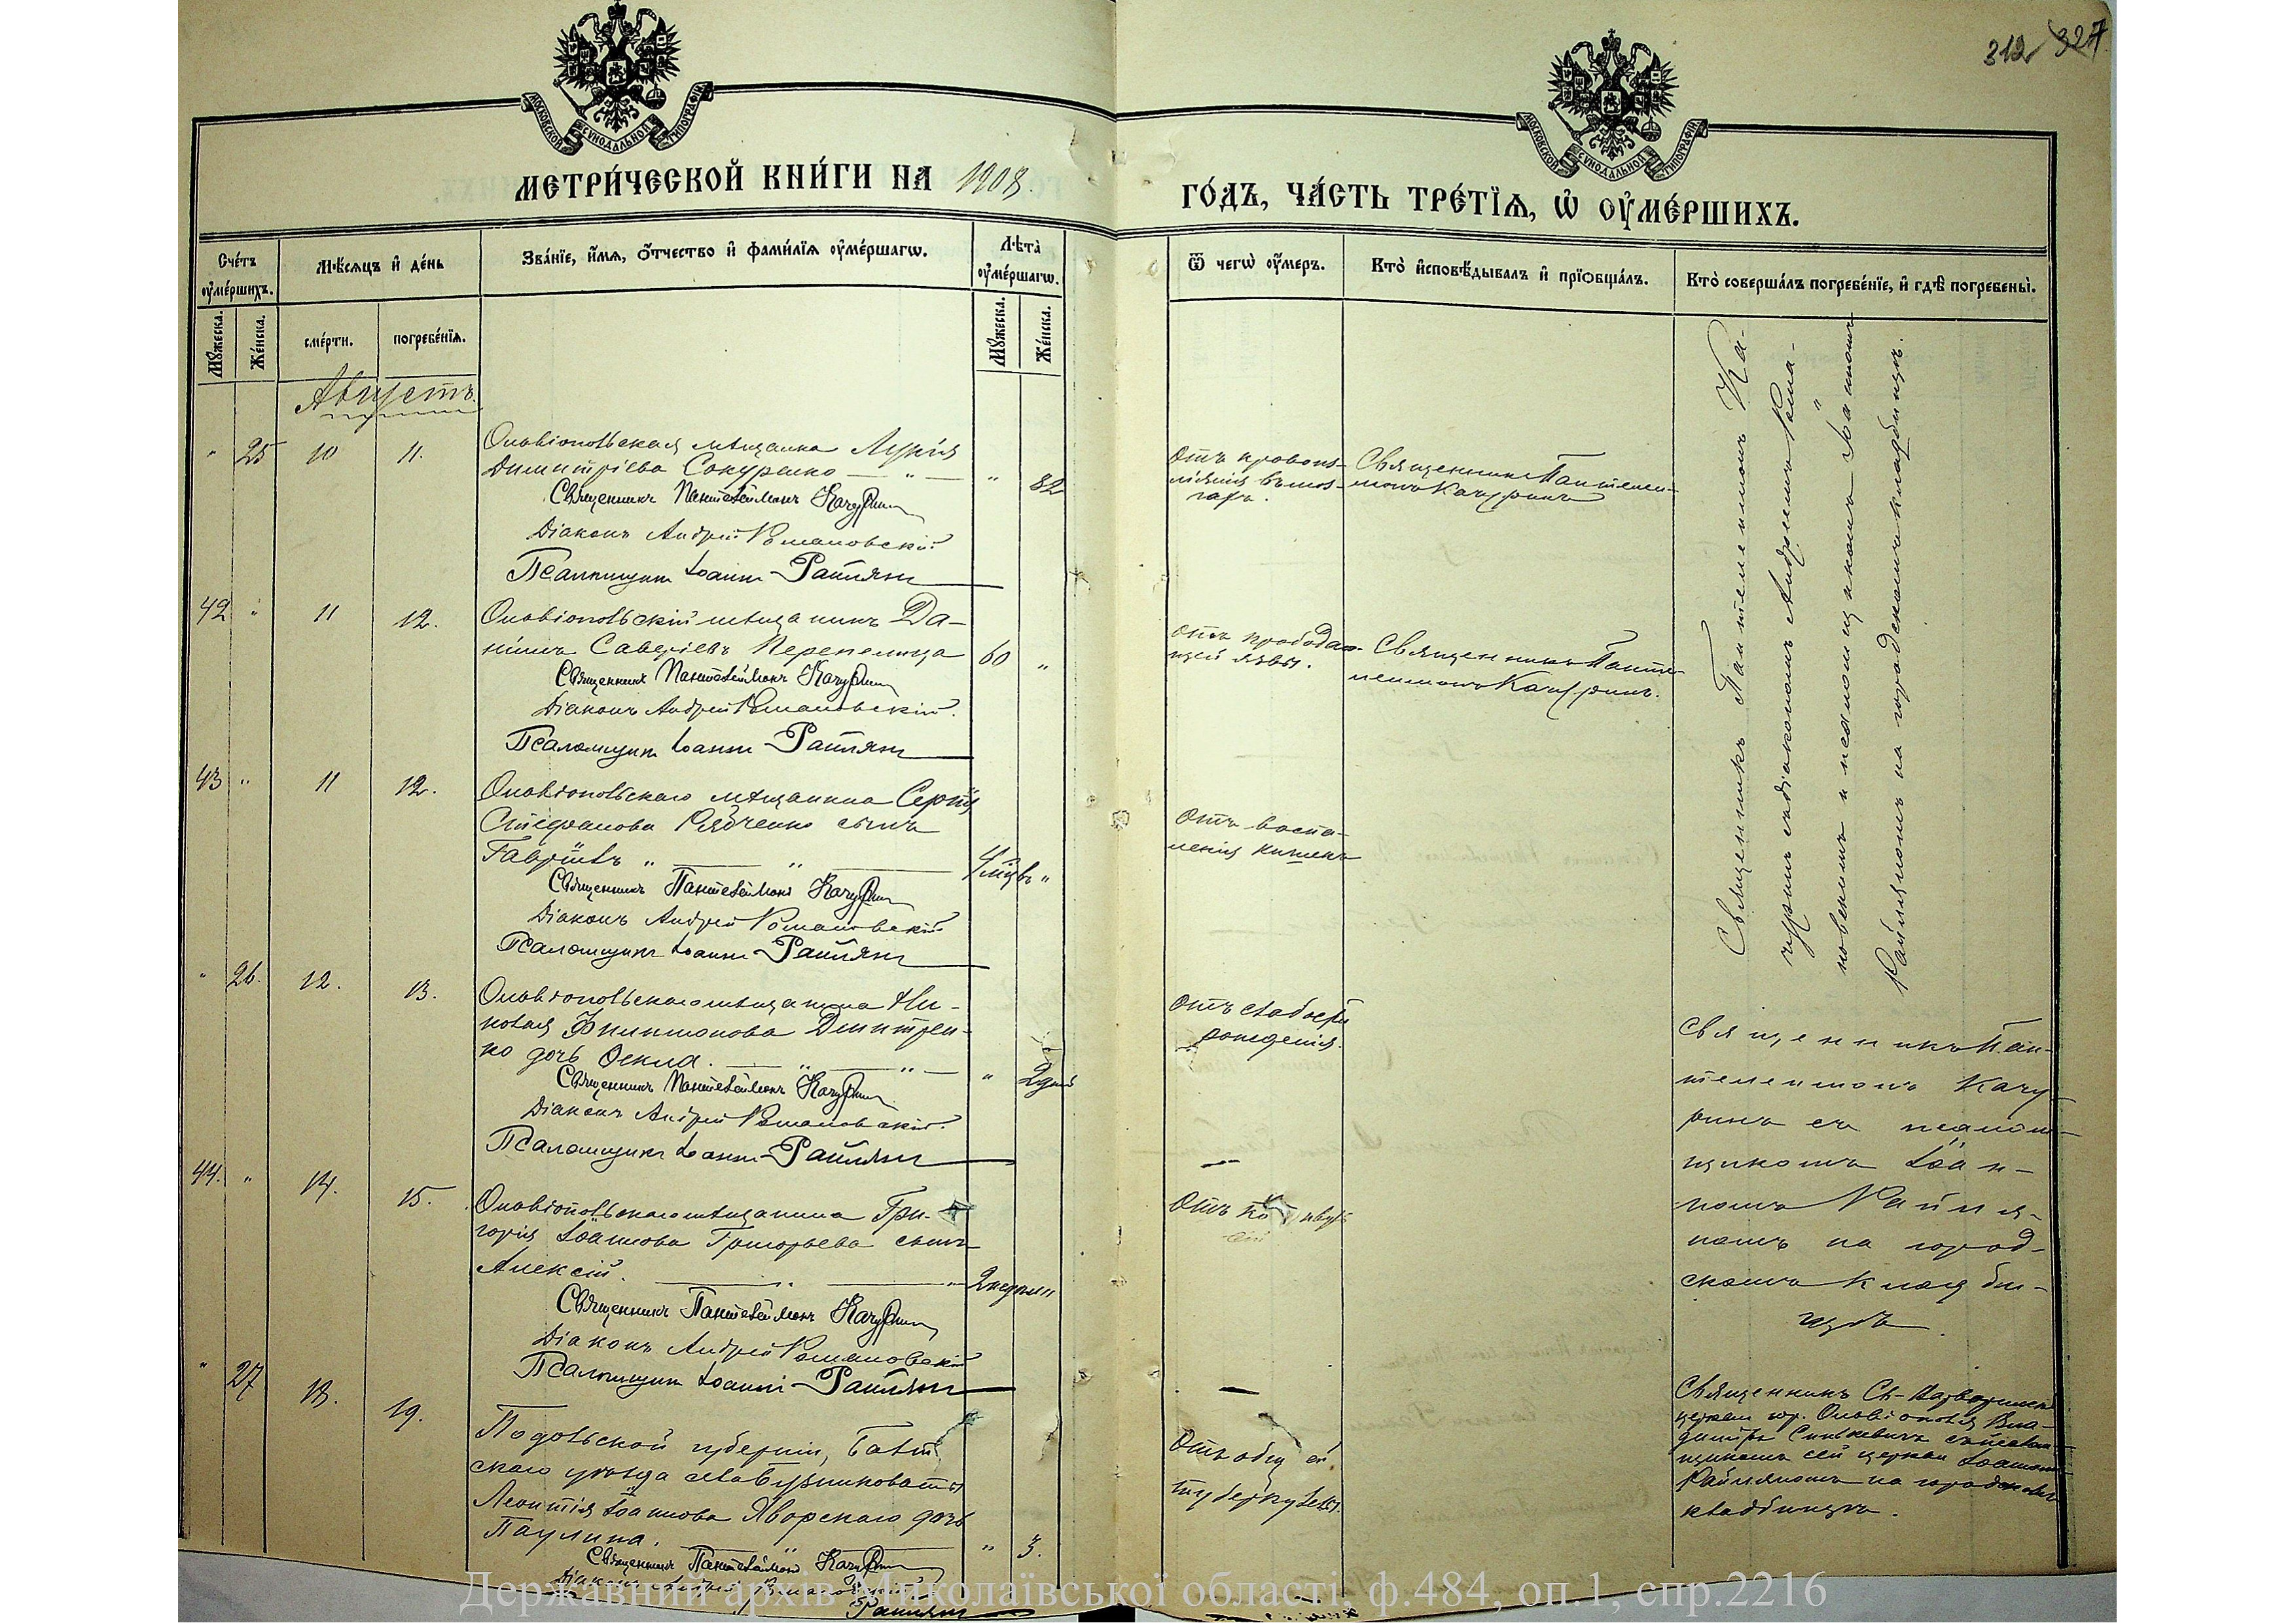 312 327
МОСКОВСКОЙ СѴНОДАЛЬНОЙ ТИПОГРАФІИ
МОСКОВСКОЙ СѴНОДАЛЬНОЙ ТИПОГРАФІИ
МЕТРИ́ЧЕСКОЙ КНИ́ГИ НА 1908.
ГО́ДЪ, ЧА́СТЬ ТРЕ́ТЇѦ, Ѡ҆ ОУ҆МЕ́РШИХЪ.
Сче́тъ оу҆ме́ршихъ.
Мꙋ́жеска.
Же́нска.
Мѣ́сѧцъ и҆ де́нь
сме́рти.
погребе́нїѧ.
Зва́нїе, и҆́мѧ, ѻ҆́тчество и҆ фами́лїѧ оу҆ме́ршагѡ.
Лѣ́та̀ оу҆ме́ршагѡ.
Мꙋ́жеска.
Же́нска.
Ѿ чегѡ̀ оу҆́меръ.
Кто̀ и҆сповѣ́дывалъ и҆ прїѡбща́лъ.
Кто̀ соверша́лъ погребе́нїе, и҆ гдѣ̀ погребены̀.
Августъ.
" 25 10 11.
Ольвіопольская мѣщанка Лукія
Димитріева Сокуренко — " —
" 82
Священникъ Пантелеймонъ Качуринъ
Діаконъ Андрей Романовскій
Псаломщикъ Іоаннъ Райлянъ
Отъ кровоиз-
ліянія въ моз-
гахъ.
Священникъ Пантелей-
монъ Качуринъ
Священникъ Пантелеимонъ Ка-
чуринъ съ діакономъ Андреемъ Рома-
новскимъ и псаломщикомъ Іоанномъ
Райляномъ на городскомъ кладбищѣ.
42 " 11 12.
Ольвіопольскій мѣщанинъ Да-
ніилъ Саверіевъ Перепелица
60 "
Священникъ Пантелеймонъ Качуринъ
Діаконъ Андрей Романовскій.
Псаломщикъ Іоаннъ Райлянъ
отъ прободаю-
щей язвы.
Священникъ Панте-
леимонъ Качуринъ.
43 " 11 12.
Ольвіопольскаго мѣщанина Сергія
Стефанова Рябченко сынъ
Гавріилъ " — " —
4 мѣс. "
Священникъ Пантелеймонъ Качуринъ
Діаконъ Андрей Романовскій
Псаломщикъ Іоаннъ Райлянъ
Отъ воспа-
ленія кишекъ
" 26. 12. 13.
Ольвіопольскаго мѣщанина Ни-
колая Филимонова Дмитрен-
ко дочь Фекла. — " — " —
" 2 дня
Священникъ Пантелеймонъ Качуринъ
Діаконъ Андрей Романовскій.
Псаломщикъ Іоаннъ Райлянъ
Отъ слабости
рожденія.
Священникъ Пан-
телеимонъ Качу-
ринъ съ псалом-
щикомъ Іоан-
номъ Райля-
номъ на город-
скомъ кладби-
щѣ.
44. " 14. 15.
Ольвіопольскаго мѣщанина Гри-
горія Іоаннова Григорьева сынъ
Алексій. — " — "
2 недѣли "
Священникъ Пантелеймонъ Качуринъ
Діаконъ Андрей Романовскій
Псаломщикъ Іоаннъ Райлянъ
Отъ
" 27 18. 19.
Подольской губерніи, Балт-
скаго уѣзда села
Леонтія Іоаннова Яворскаго дочь
Паулина. — " —
" 3.
Священникъ Пантелеймонъ Качуринъ
Діаконъ Андрей Романовскій
Райлянъ
Отъ общей
туберкулезы.
Священникъ Св-
церкви гор. Ольвіополя Вла-
диміръ Синькевичъ съ псалом-
щикомъ сей церкви Іоанномъ
Райляномъ на городскомъ
кладбищѣ.
Державний архів Миколаївської області, ф.484, оп.1, спр.2216